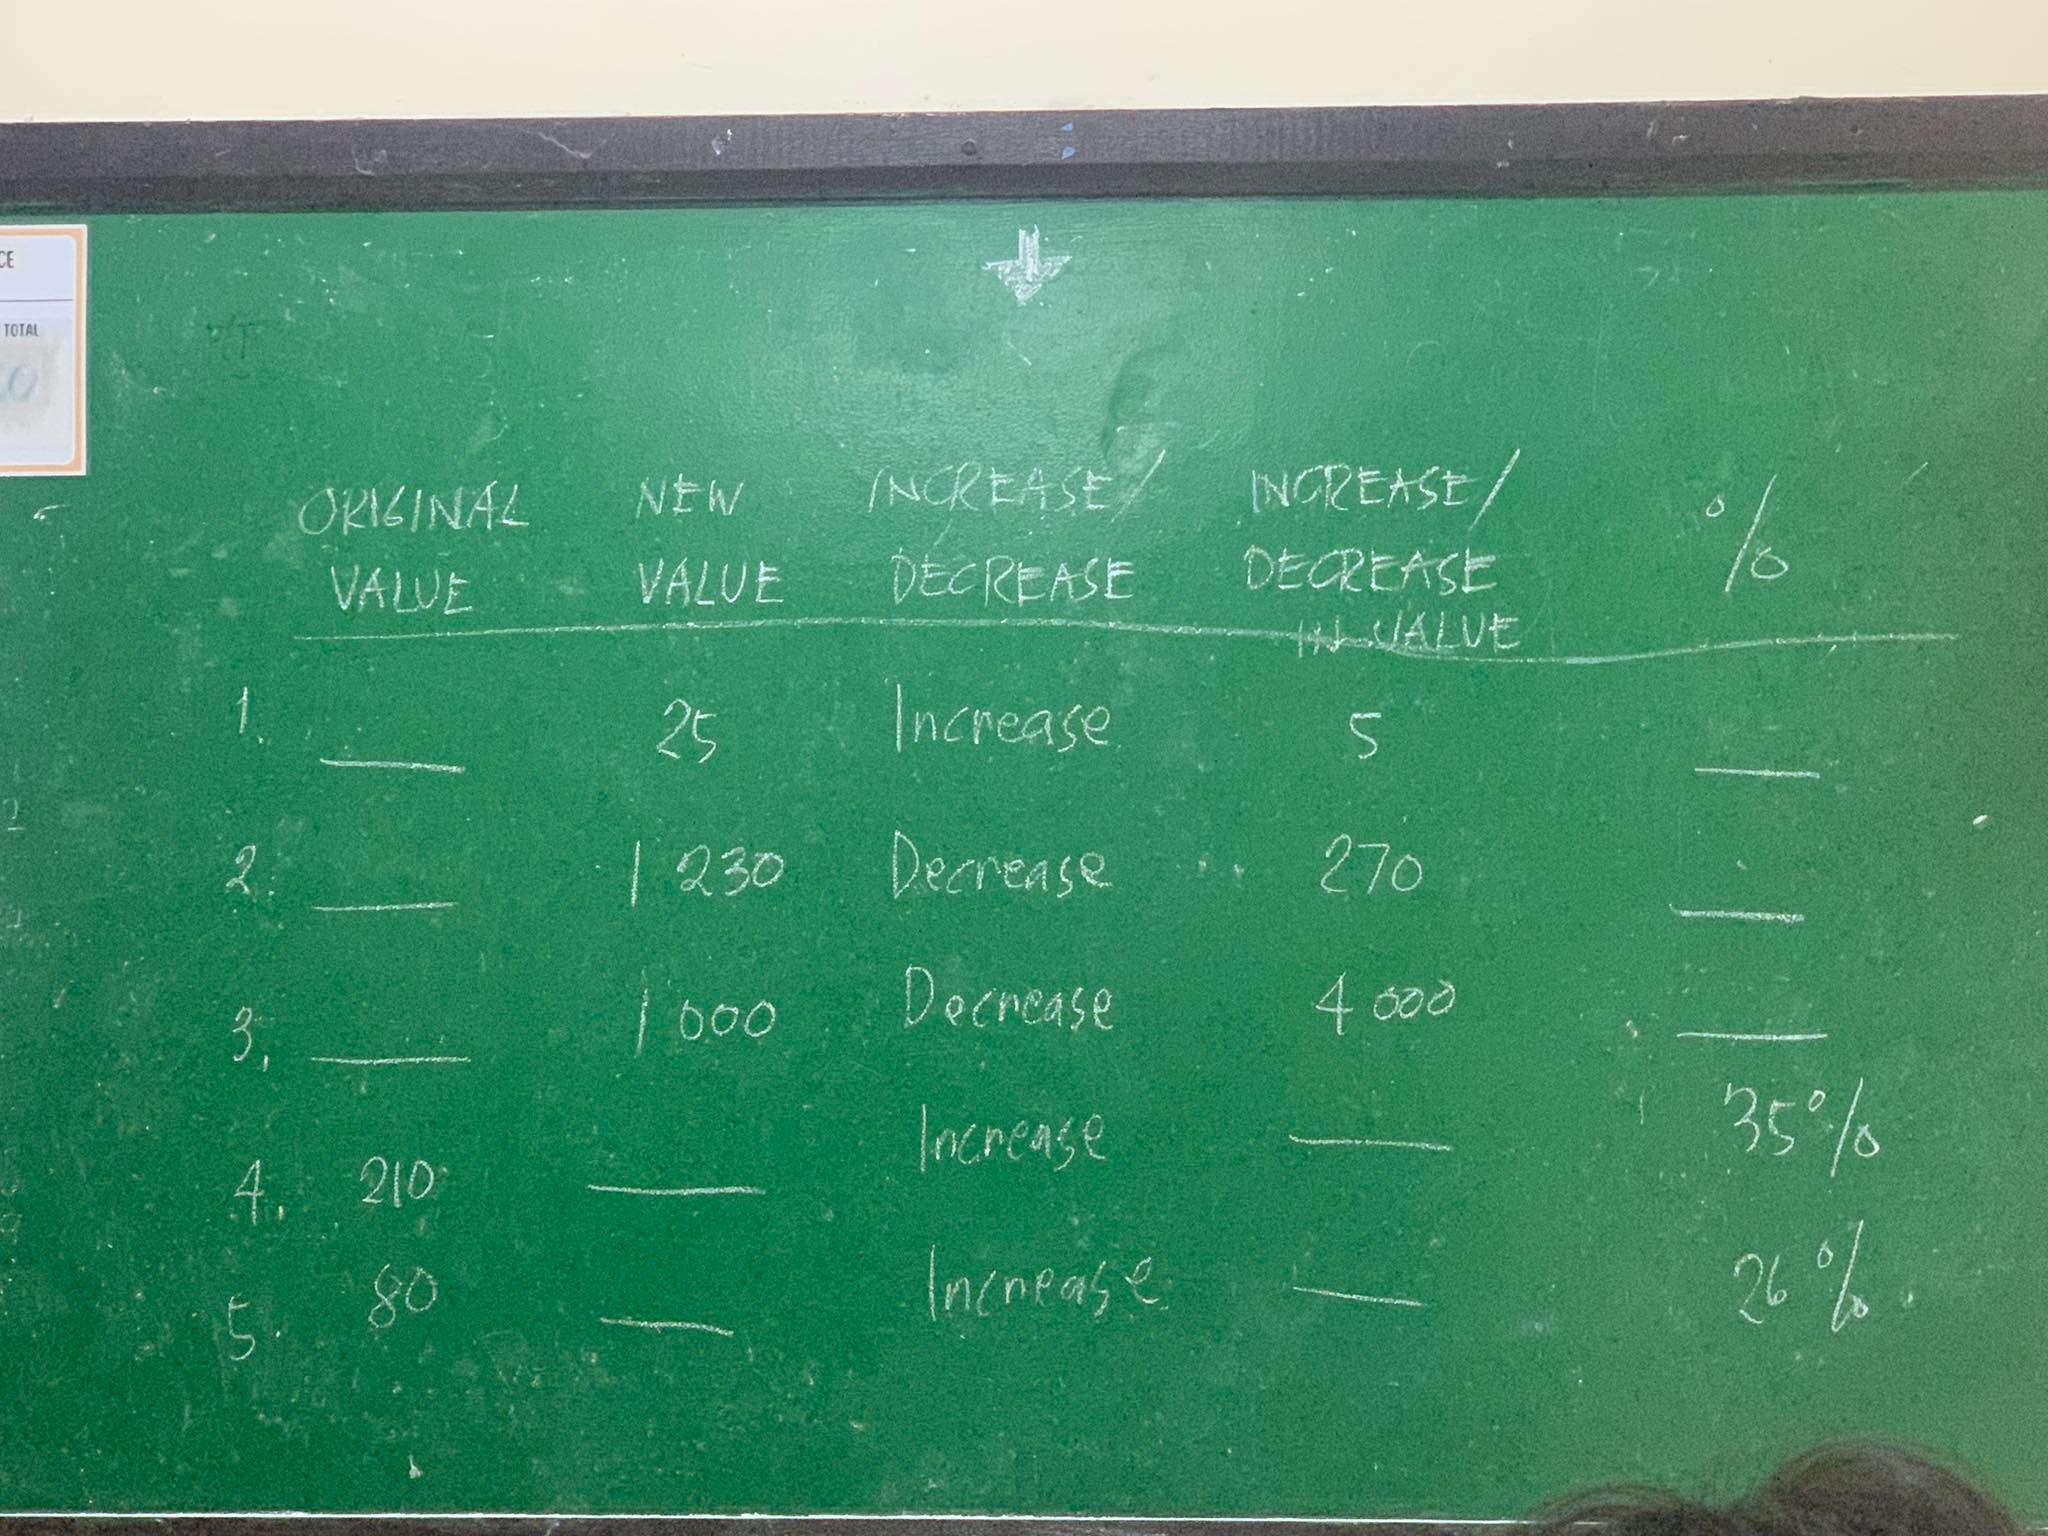 CE
TOTAL
ORIGINAL NEW INCREASE/ INCREASE/ %
VALUE VALUE DECREASE DECREASE
IN VALUE
1. ___ 25 Increase 5 ___
2. ___ 1 230 Decrease 270 ___
3. ___ 1 000 Decrease 4 000 ___
4. 210 ___ Increase ___ 35%
5. 80 ___ Increase ___ 26%